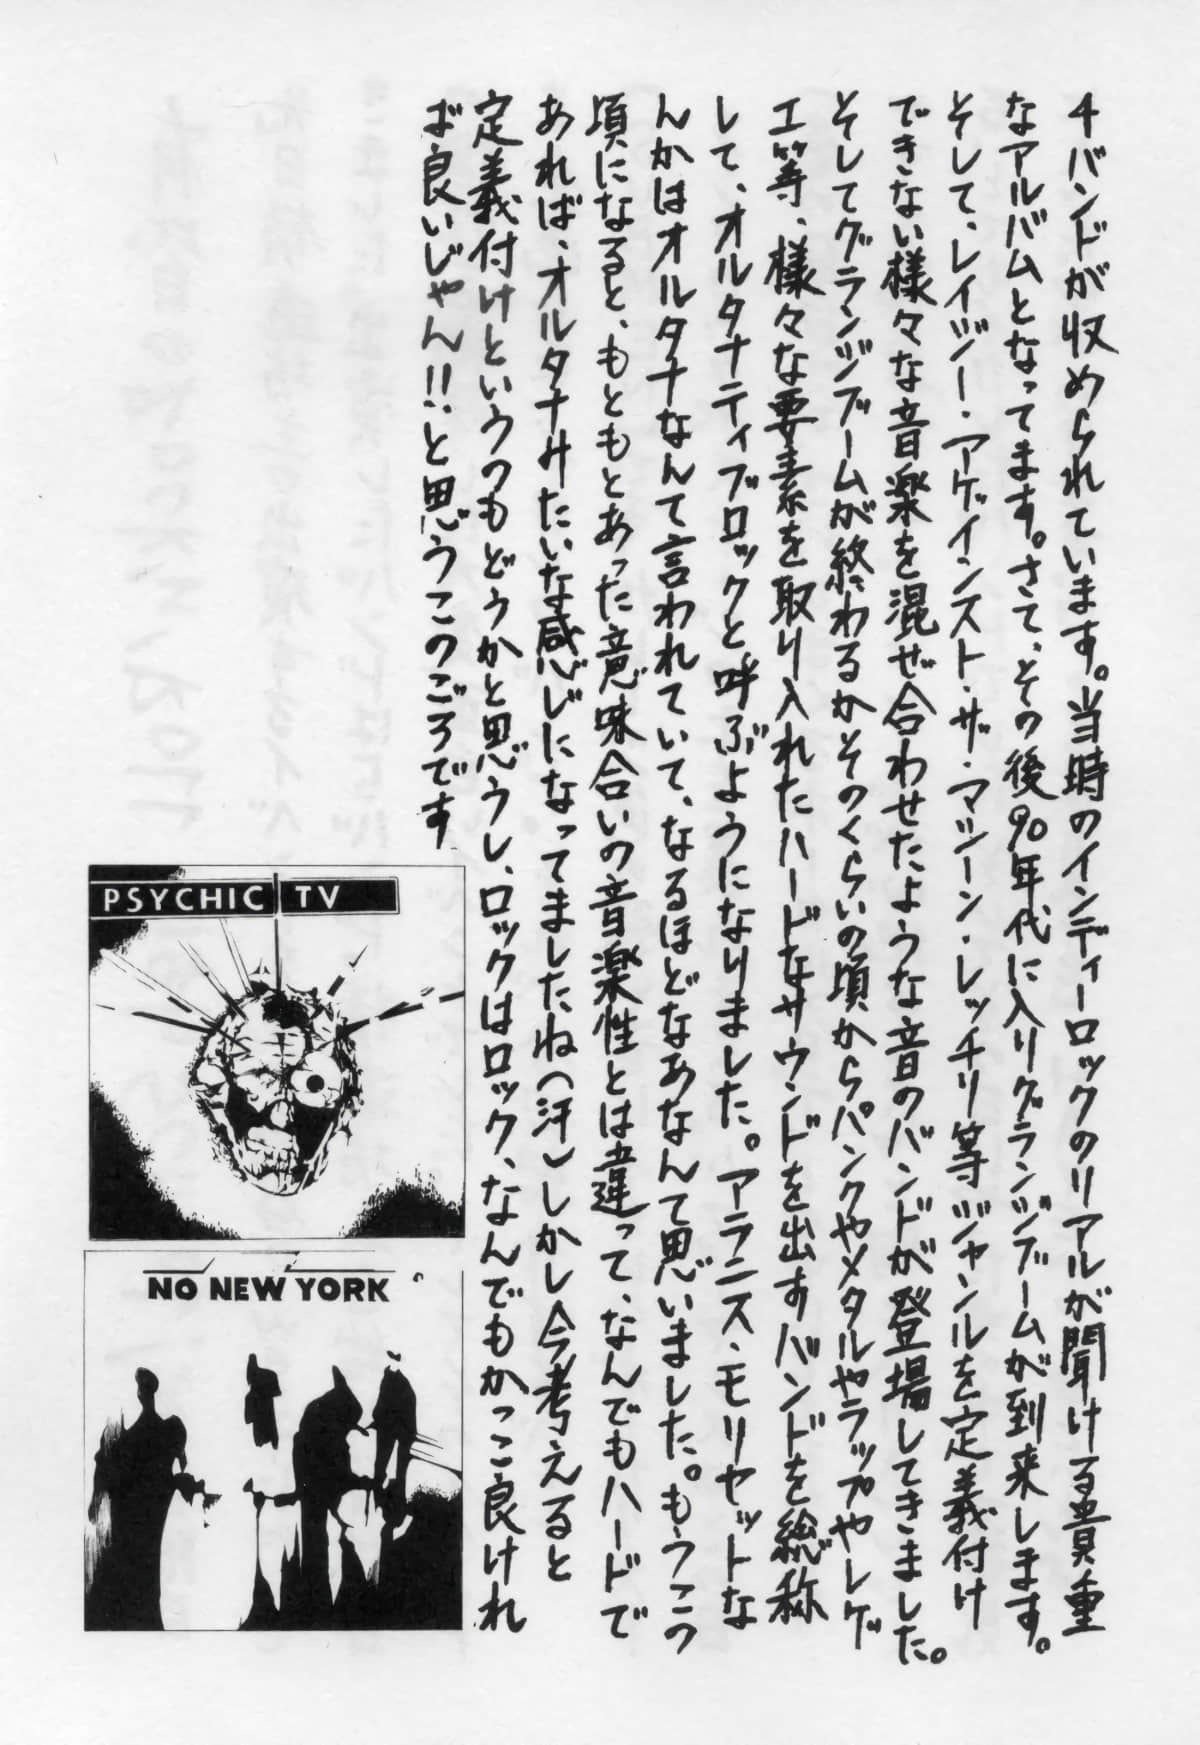 4バンドが収められています。当時のインディーロックのリアルが聞ける貴重
なアルバムとなってます。さて、その後90年代に入りグランジブームが到来します。
そして、レイジー・アゲインスト・ザ・マシーン・レッチリ等ジャンルを定義付け
できない様々な音楽を混ぜ合わせたような音のバンドが登場してきました。
そしてグランジブームが終わるかそのくらいの頃からパンクやメタルやラップやレゲ
エ等、様々な要素を取り入れたハードなサウンドを出すバンドを総称
して、オルタナティブロックと呼ぶようになりました。アラニス・モリセットな
んかはオルタナなんて言われていて、なるほどなあなんて思いました。もうこの
頃になると、もともとあった意味合いの音楽性とは違って、なんでもハードで
あれば、オルタナみたいな感じになってましたね(汗)しかし今考えると
定義付けというのもどうかと思うし、ロックはロック、なんでもかっこ良けれ
ば良いじゃん!!と思うこのごろです
PSYCHIC TV
NO NEW YORK